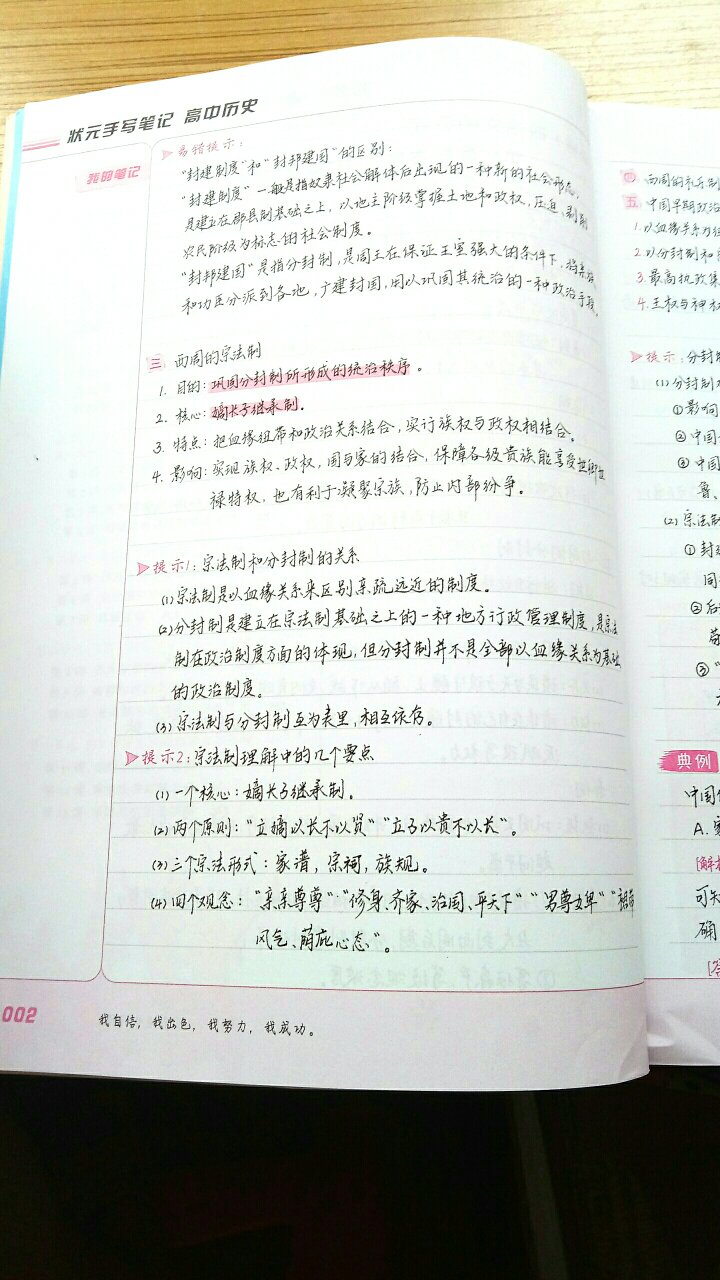 状元手写笔记 高中历史
我的笔记
易错提示:
"封建制度"和"封邦建国"的区别:
"封建制度"一般是指奴隶社会解体后出现的一种新的社会形态,
是建立在郡县制基础之上,以地主阶级掌握土地和政权,压迫、剥削
农民阶级为标志的社会制度。
"封邦建国"是指分封制,是周王在保证王室强大的条件下,将宗族
和功臣分派到各地,广建封国,用以巩固其统治的一种政治手段。
三 西周的宗法制
1. 目的:巩固分封制所形成的统治秩序。
2. 核心:嫡长子继承制。
3. 特点:把血缘纽带和政治关系结合,实行族权与政权相结合。
4. 影响:实现族权、政权,国与家的结合,保障各级贵族能享受世卿世
禄特权,也有利于凝聚宗族,防止内部纷争。
提示1:宗法制和分封制的关系
(1)宗法制是以血缘关系来区别亲疏远近的制度。
(2)分封制是建立在宗法制基础之上的一种地方行政管理制度,是宗法
制在政治制度方面的体现,但分封制并不是全部以血缘关系为基础
的政治制度。
(3)宗法制与分封制互为表里,相互依存。
提示2:宗法制理解中的几个要点
(1)一个核心:嫡长子继承制。
(2)两个原则:"立嫡以长不以贤""立子以贵不以长"。
(3)三个宗法形式:家谱,宗祠,族规。
(4)四个观念:"亲亲尊尊""修身、齐家、治国、平天下""男尊女卑""裙带
风气、荫庇心态"。
002
我自信,我出色,我努力,我成功。
四 西周的礼乐制
五 中国早期政治
1.以血缘关系为纽
2.以分封制和
3.最高执政集
4.王权与神权
提示:分封制
(1)分封制
①影响
②中国
③中国
鲁、
(2)宗法制
①封
同
②后
③"
典例
中国
A.家
[解析
可知
确
[答